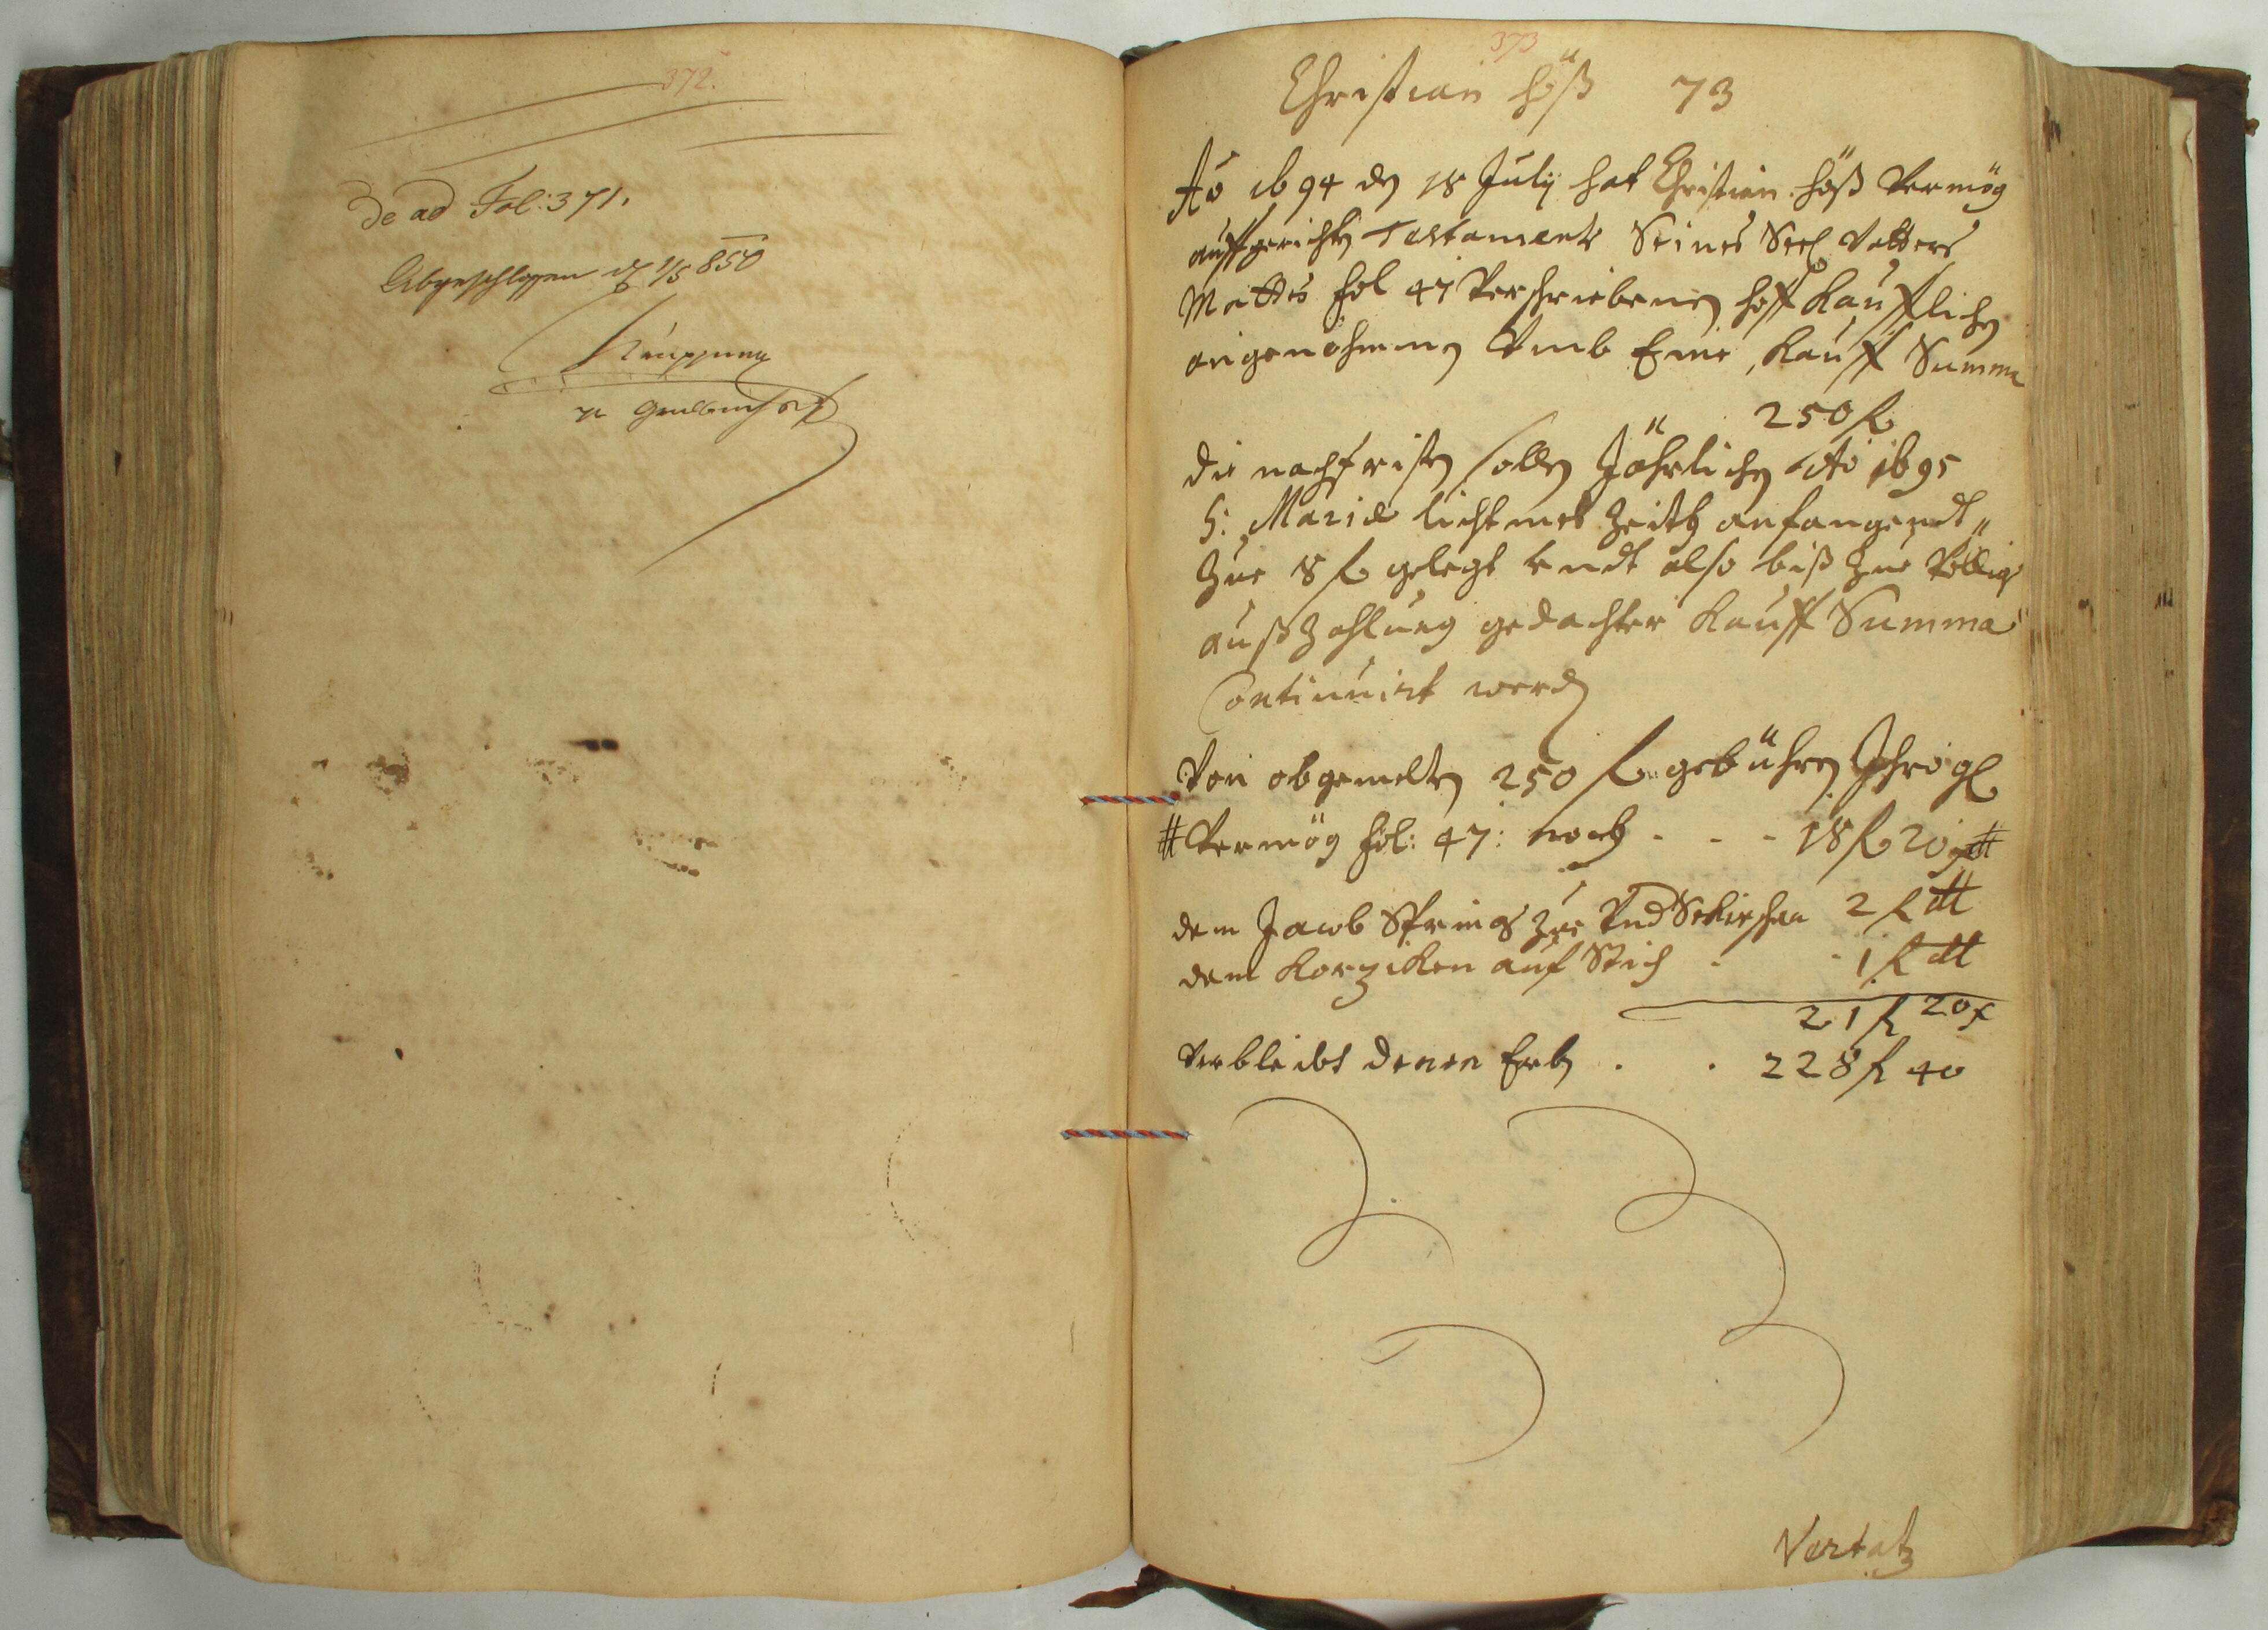 372.
De ad Fol: 371.
Abgeschlossen d 1/5 850
373
Christian Höß 73
Aō 1694 dey 18 July hat Christian Höß Vermög
auffgerichtey Testaments Seines Seel Vatters
Mattes fol 47 Verschriebeney hoff Kaufflichey
angenohmmey Vmb Eine Kauff Summa
250 fl
die nachfristey solley Jährlichey Aō 1695
H: Mariae lichtmes Zeith anfangendt
Zue 8 fl gelegt undt also biß Zue Völlig
außZahlung gedachter Kauff Summa
Continuirt werdy
Von obgemeltey 250 fl gebührey Ihro g
# Vermög fol: 47: noch - - - 18 fl 20 #
dem Jacob Spring Zue 2 fl #
dem Korziken auf Stich - - 1 fl #
21 fl 20 x
Verbleibt denen Erby . . 228 fl 40
Vertatz